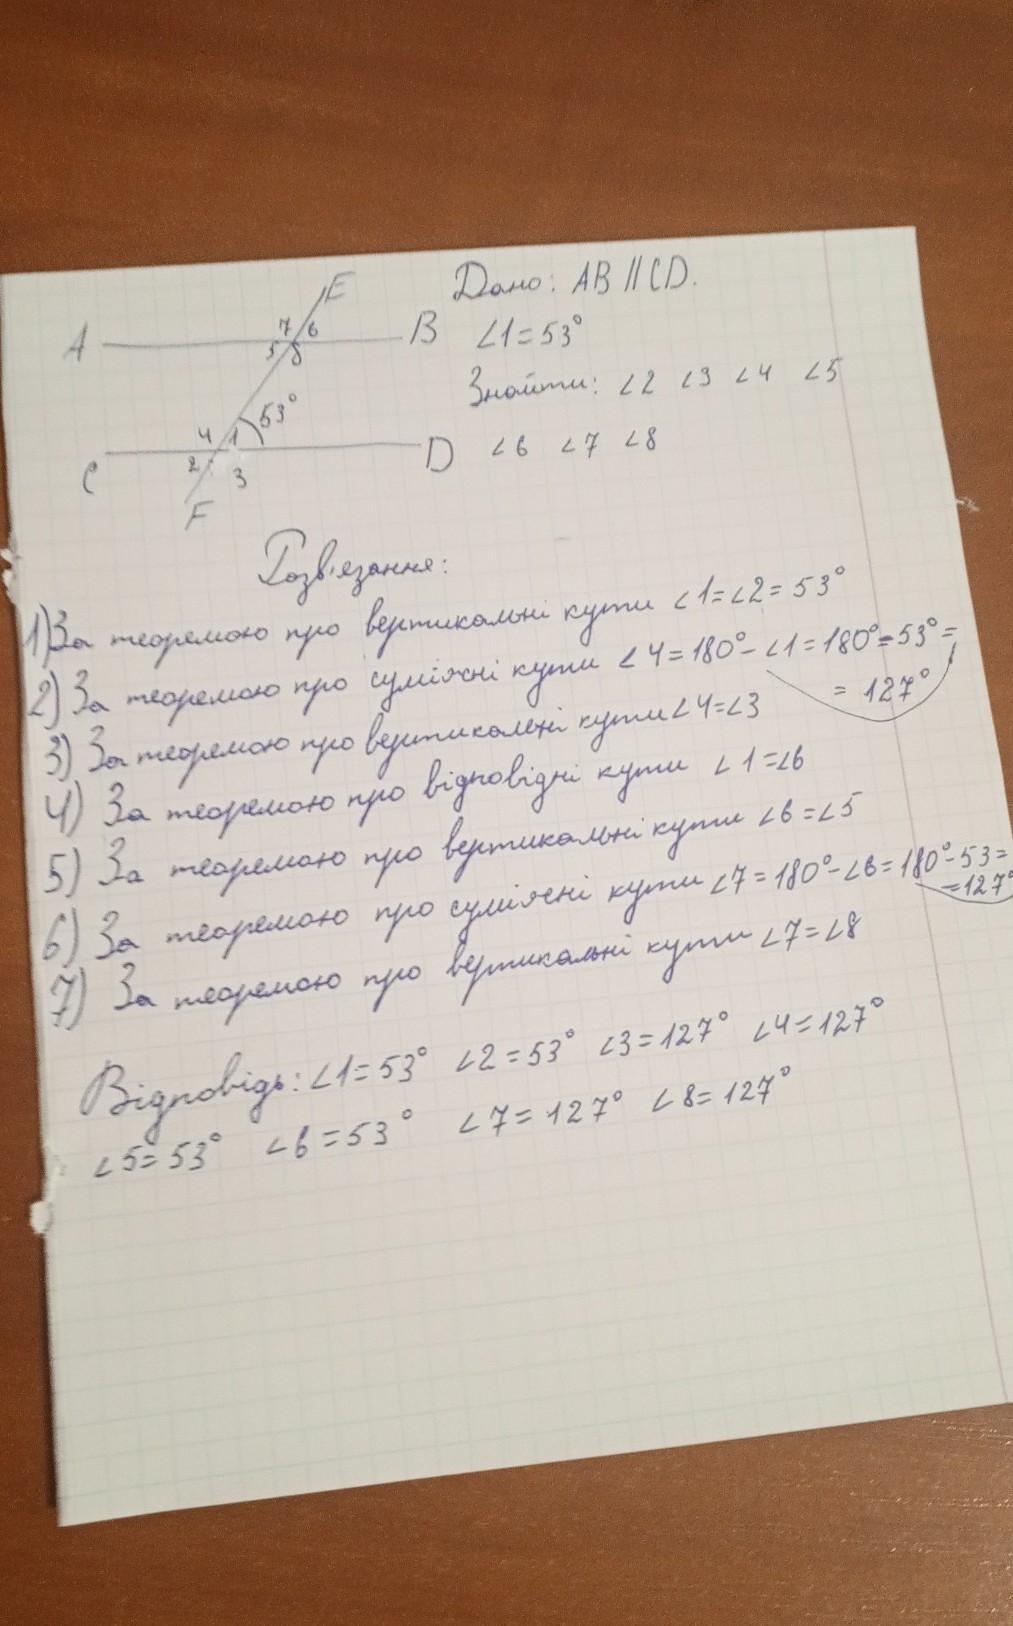 E
Дано: AB || CD.
A 7 6 B
5 8
∠1 = 53°
Знайти: ∠2 ∠3 ∠4 ∠5
53°
4 1
C 2 3 D
∠6 ∠7 ∠8
F
Розв'язання:
1) За теоремою про вертикальні кути ∠1=∠2=53°
2) За теоремою про суміжні кути ∠4=180°-∠1=180°-53°=
= 127°
3) За теоремою про вертикальні кути ∠4=∠3
4) За теоремою про відповідні кути ∠1=∠6
5) За теоремою про вертикальні кути ∠6=∠5
6) За теоремою про суміжні кути ∠7=180°-∠6=180°-53=
=127°
7) За теоремою про вертикальні кути ∠7=∠8
Відповідь: ∠1=53° ∠2=53° ∠3=127° ∠4=127°
∠5=53° ∠6=53° ∠7=127° ∠8=127°